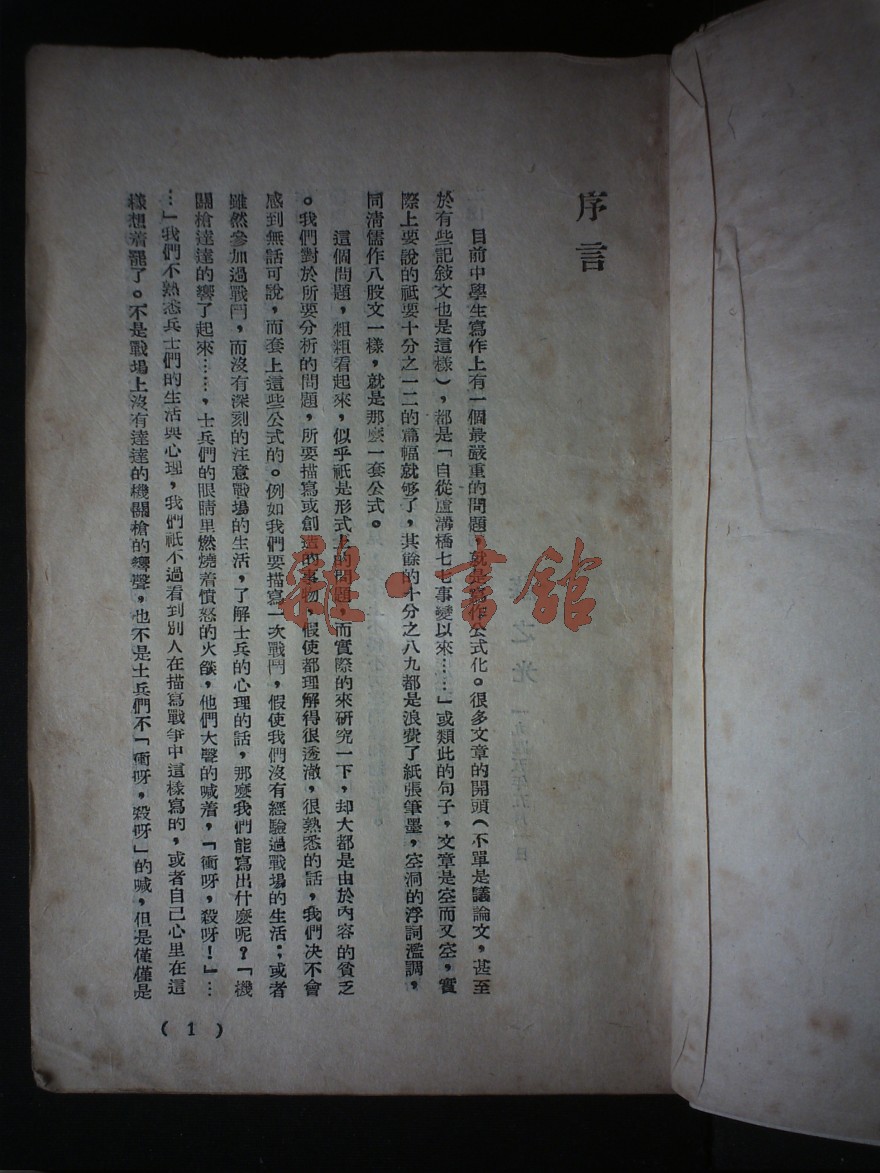 序言
目前中學生寫作上有一個最嚴重的問題，就是寫作公式化。很多文章的開頭（不單是議論文，甚至
於有些記敍文也是這樣），都是「自從盧溝橋七七事變以來……」或類此的句子，文章是空而又空，實
際上要說的祇要十分之一二的篇幅就够了，其餘的十分之八九都是浪費了紙張筆墨，空洞的浮詞濫調，
同清儒作八股文一樣，就是那麼一套公式。
這個問題，粗粗看起來，似乎祇是形式上的問題，而實際的來研究一下，却大都是由於內容的貧乏
。我們對於所要分析的問題，所要描寫或創造的事物，假使都理解得很透澈，很熟悉的話，我們决不會
感到無話可說，而套上這些公式的。例如我們要描寫一次戰鬥，假使我們沒有經驗過戰場的生活；或者
雖然參加過戰鬥，而沒有深刻的注意戰場的生活，了解士兵的心理的話，那麼我們能寫出什麼呢？「機
關槍達達的響了起來……，士兵們的眼睛里燃燒着憤怒的火燄，他們大聲的喊着，「衝呀，殺呀！」…
…」我們不熟悉兵士們的生活與心理，我們祇不過看到別人在描寫戰爭中這樣寫的，或者自己心里在這
樣想着罷了。不是戰場上沒有達達的機關槍的響聲，也不是士兵們不「衝呀，殺呀」的喊，但是僅僅是
（1）
雜·書館
之光 一九四五年五月一日